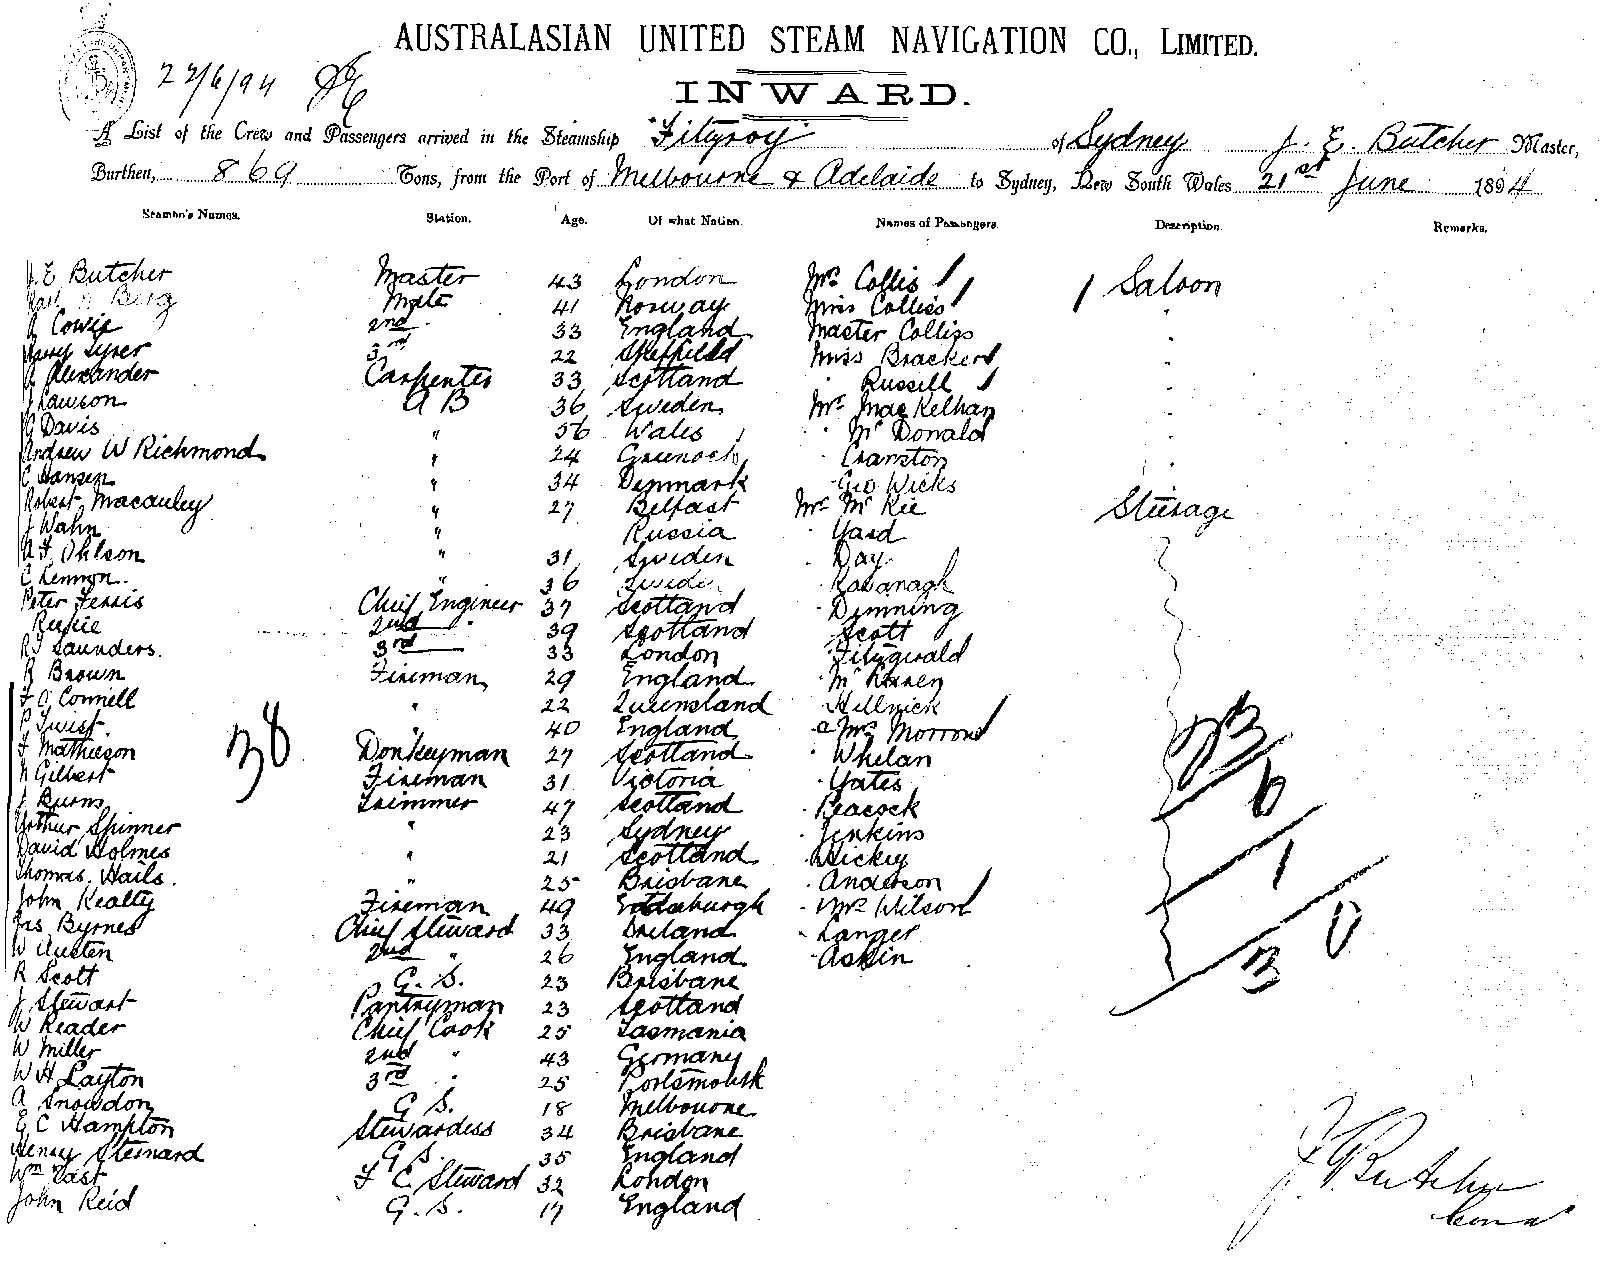 AUSTRALASIAN UNITED STEAM NAVIGATION CO., LIMITED.
22/6/94
INWARD.
A List of the Crew and Passengers arrived in the Steamship "Fitzroy" of Sydney J. E. Butcher Master,
Burthen, 869 Tons, from the Port of Melbourne & Adelaide to Sydney, New South Wales 21st June 1894
Seamen's Names. Station. Age. Of what Nation. Names of Passengers. Description. Remarks.
J. E Butcher Master 43 London Mrs Collis 1 Saloon
Berg Mate 41 Norway Miss Colliss "
Cowie 2nd 33 England Master Colliss "
Harry Tyrer 3rd 22 Sheffield Miss Bracker "
A Alexander Carpenter 33 Scotland Russell "
J Lawson A B 36 Sweden Mr MacKelhan "
G Davis " 56 Wales " McDonald "
Andrew W Richmond " 24 Greenock " Cranston "
C Hansen " 34 Denmark " Geo Wicks
Robert Macauley " 27 Belfast Mr McKie Steerage
J Wahn " Russia Yard
A F Ohlson " 31 Sweden Day
C Lennon " 36 Sweden Kavanagh
Peter Ferris Chief Engineer 37 Scotland Dimning
Reekie 2nd 39 Scotland Scott
R J Saunders. 3rd 33 London Fitzgerald
R Brown Fireman 29 England
F O Connell " 22 Queensland Hellnick
P Twist " 40 England Mrs Morrow
F Mathieson 38 Donkeyman 27 Scotland Whelan 33
N Gilbert Fireman 31 Victoria Yates 6
J Burns Trimmer 47 Scotland Peacock
Arthur Spinner " 23 Sydney Jenkins
David Holmes " 21 Scotland Hickey 1
Thomas Hails. " 25 Brisbane Anderson
John Kealty Fireman 49 Edinburgh Mrs Wilson
Jas Byrnes Chief Steward 33 Ireland Langer 0
W Austen 2nd " 26 England Askin 3
R Scott G. S. 23 Brisbane
J. Stewart Pantryman 23 Scotland
W Reader Chief Cook 25 Tasmania
W Miller 2nd " 43 Germany
W H Layton 3rd " 25 Portsmouth
A Snowdon G S. 18 Melbourne
E C Hampton Stewardess 34 Brisbane
Henry Steinard G S. 35 England
Wm East F C Steward 32 London
John Reid G. S. 17 England
J E Butcher